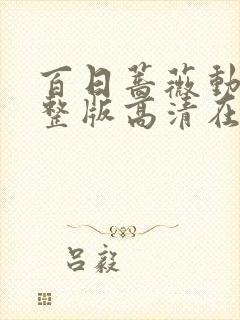 百日蔷薇动
整版高清在
吕毅